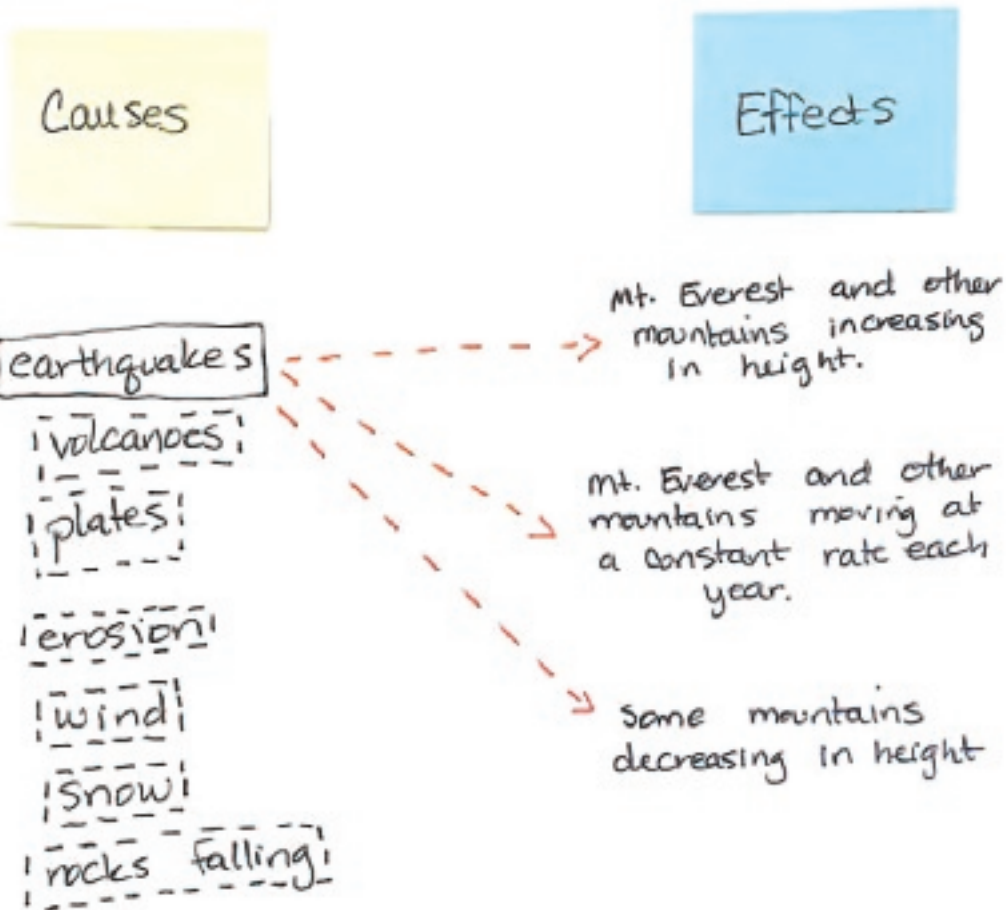 Causes
Effects
earthquakes
volcanoes
plates
erosion
wind
snow
rocks falling
Mt. Everest and other
mountains increasing
in height.
Mt. Everest and other
mountains moving at
a constant rate each
year.
Some mountains
decreasing in height